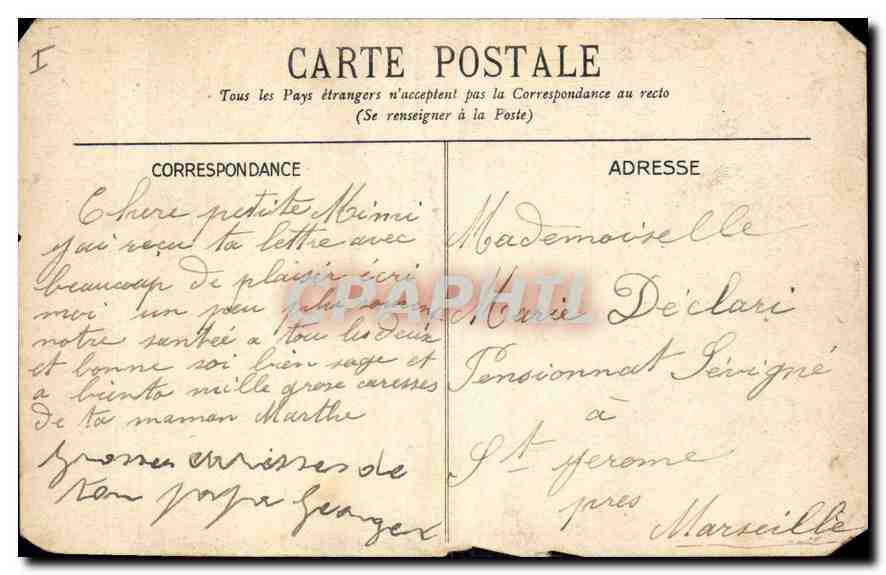 I
CARTE POSTALE
Tous les Pays étrangers n'acceptent pas la Correspondance au recto
(Se renseigner à la Poste)
CORRESPONDANCE
Chere petite Mimi
j'ai reçu ta lettre avec
beaucoup de plaisir écri
moi un peu plus
notre santée a tou les deux
et bonne soi bien sage et
a biento mille grose caresses
de ta maman Marthe
Grosses caresses de
ton papa Georges
ADRESSE
Mademoiselle
Marie Déclari
Pensionnat Sévigné
à
St Jerome
pres
Marseille
CPAPHIL